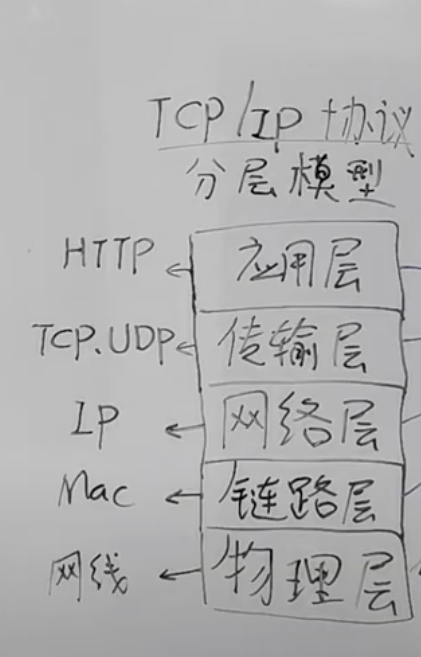 TCP/IP 协议
分层模型
HTTP ← 应用层
TCP.UDP ← 传输层
IP ← 网络层
Mac ← 链路层
网线 ← 物理层